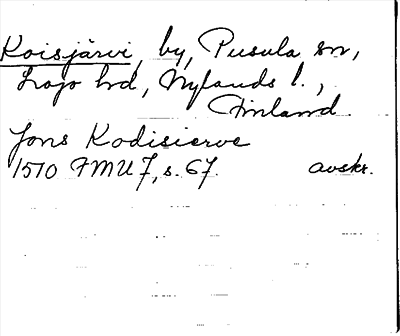 Koisjärvi, by, Pusula sn,
Lojo hd, Nylands l.,
Finland
Jons Kodisierve
1510 FMU 7, s. 67. avskr.